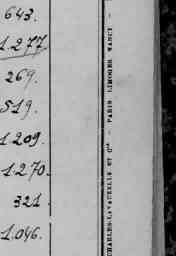 643.
1.277
269.
519.
1.209.
1.270.
321
1.046.
CHARLES-LAVAUZELLE ET Cie — PARIS LIMOGES NANCY —